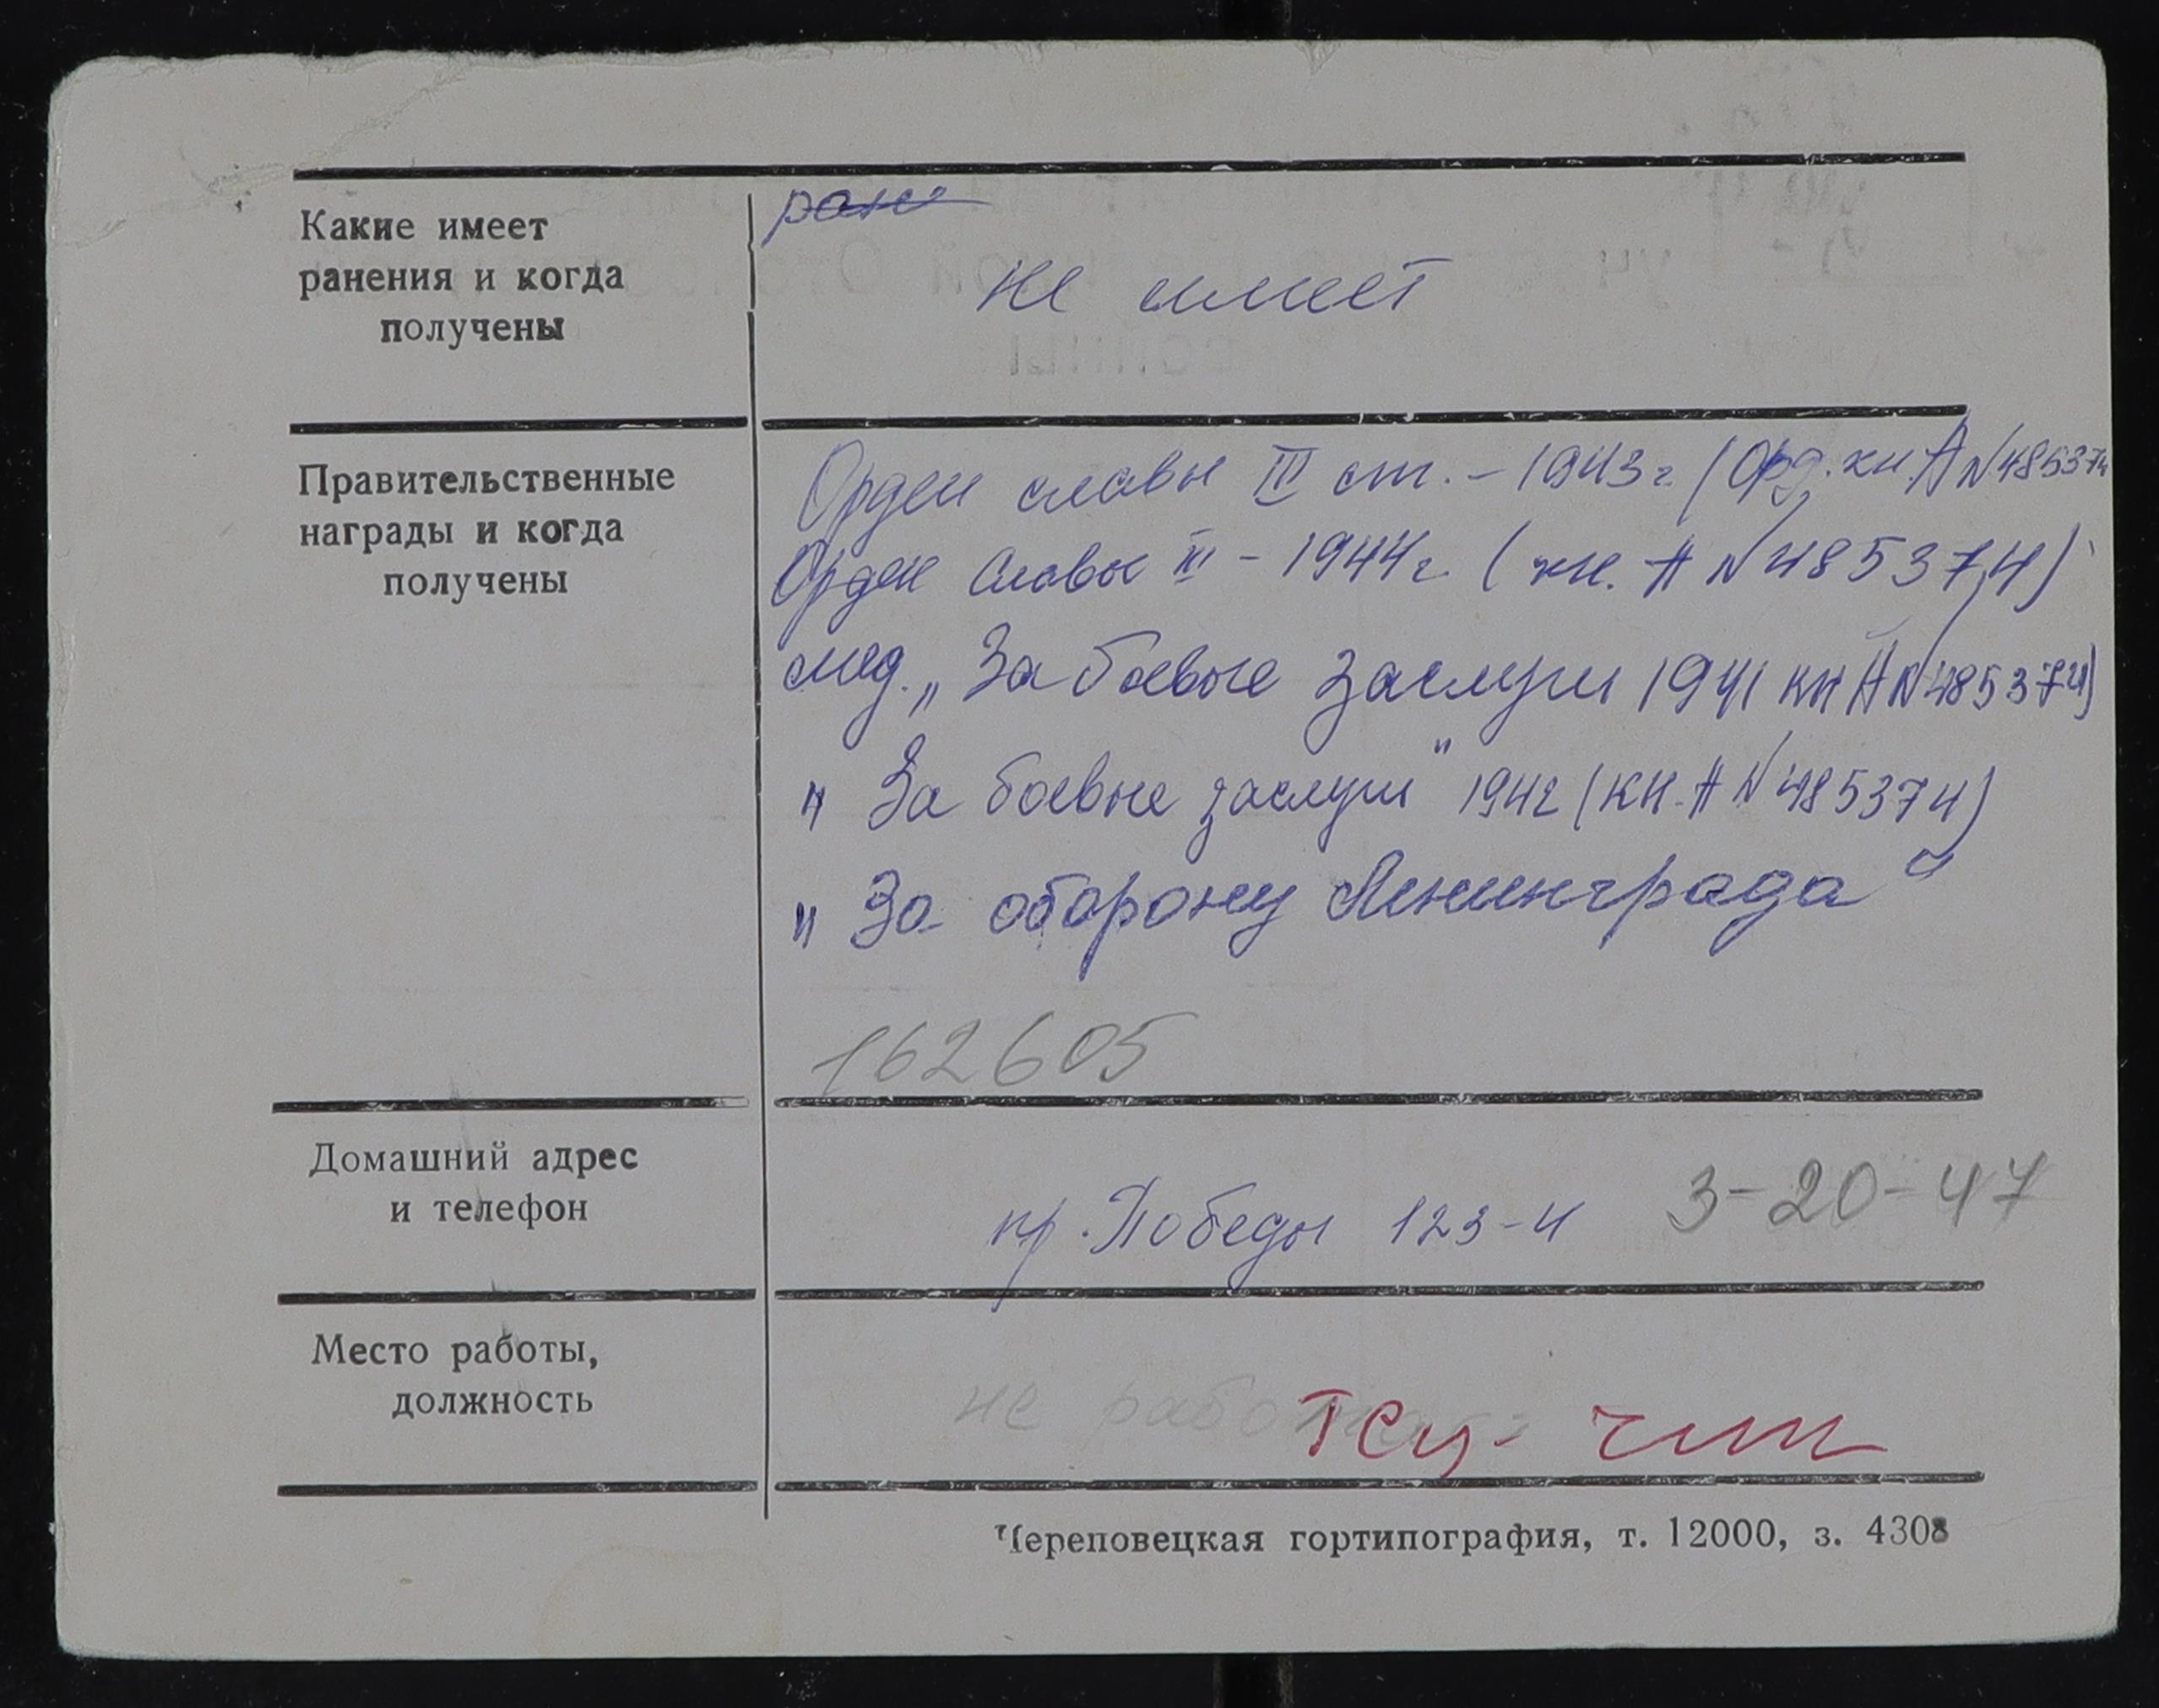 Какие имеет
ранения и когда
получены
ран
не имеет
Правительственные
награды и когда
получены
Орден славы III ст. – 1943 г. (Орд. кн. А № 485374
Орден Славы III – 1944 г (кн. А № 485374)
мед. „За боевые заслуги 1941 кн А № 485374)
„ За боевые заслуги" 1942 (кн. А № 485374)
„ За оборону Ленинграда"
162605
Домашний адрес
и телефон
пр. Победы 123-4 3-20-47
Место работы,
должность
не работает
Череповецкая гортипография, т. 12000, з. 4308